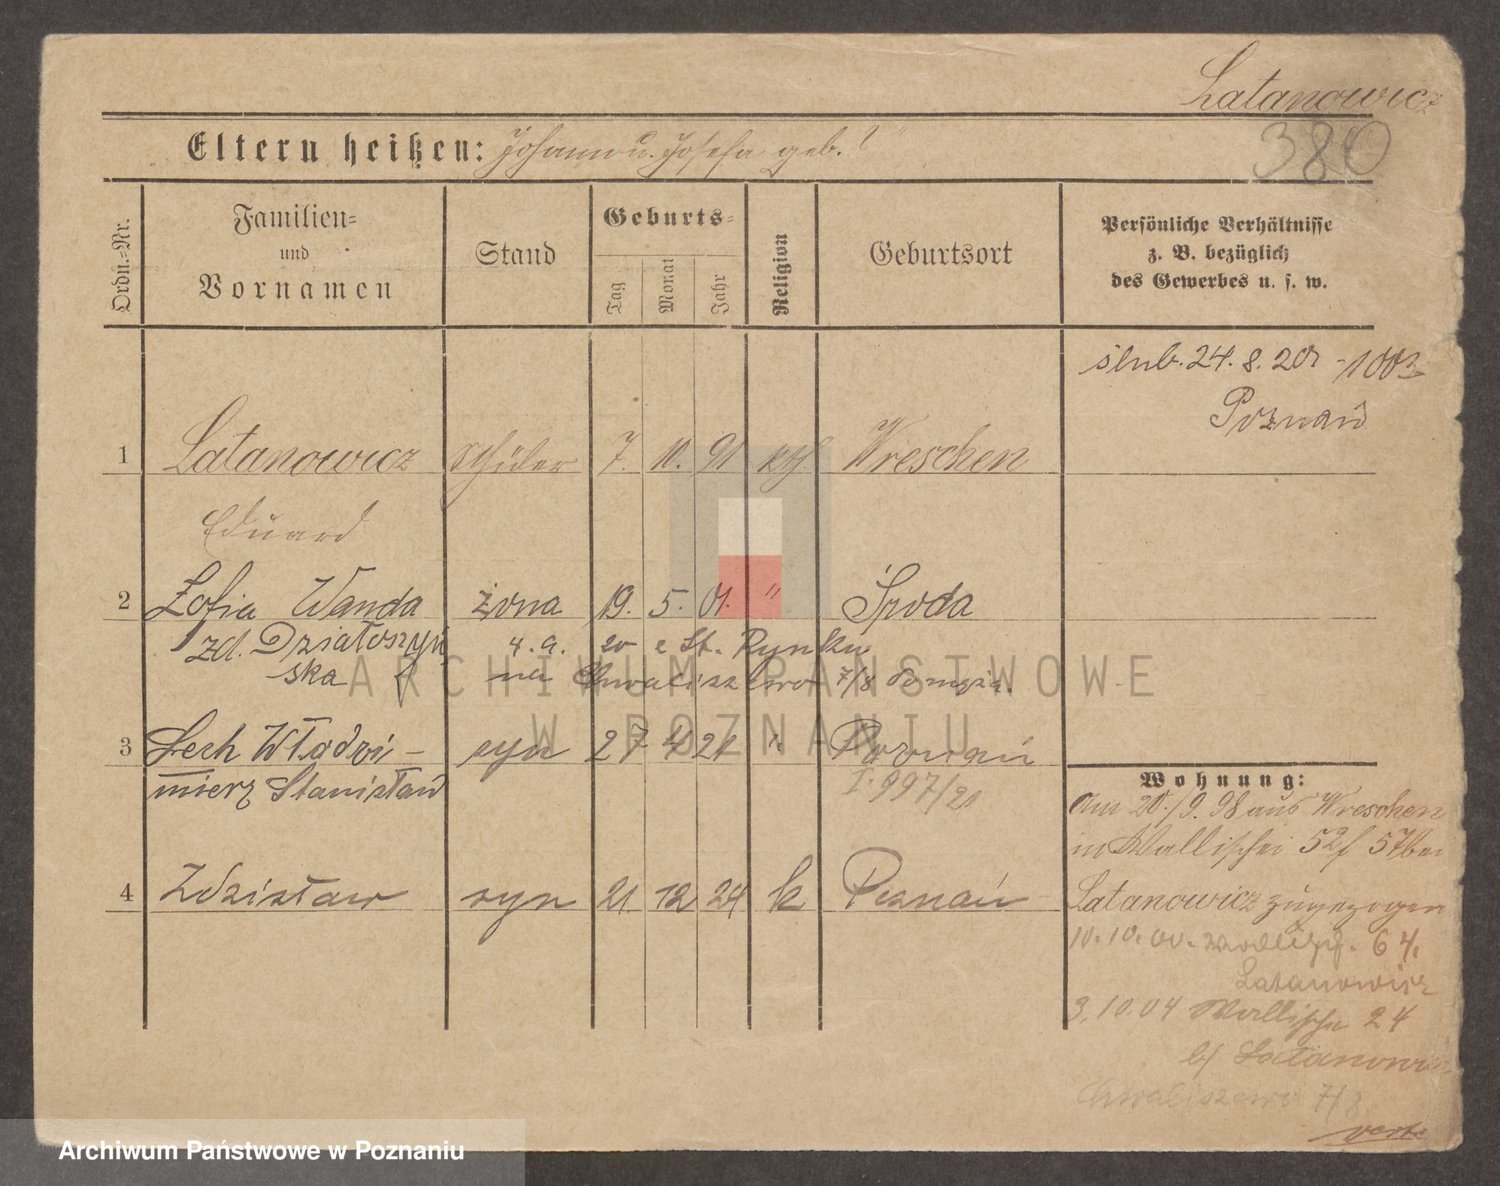 Latanowicz
Eltern heißen: Johann u. Josefa geb. ?
380
Ordn.-Nr.
Familien- und Vornamen
Stand
Geburts-
Tag
Monat
Jahr
Religion
Geburtsort
Persönliche Verhältnisse
z. B. bezüglich
des Gewerbes u. s. w.
ślub. 24. 8. 20
Poznań
1 Latanowicz Schüler 7. 10. 91 kth Wreschen
Eduard
2 Zofia Wanda żona 19. 5. 01. " Środa
zd. Działoszyń
ska
4. 9. 20 z St. Rynku
na Chwaliszewo 7/8
3 Lech Włodzi- syn 27 4 21 " Poznań
mierz Stanisław
I. 997/21
4 Zdzisław syn 21 12 24 k Poznań
Wohnung:
Am 20./9. 98 aus Wreschen
in Wallischei 52/ 57 bei
Latanowicz zugezogen
10. 10. 00. Wallisch. 64.
Latanowicz
3. 10. 04 Wallische 24
b/ Latanowicz
Chwaliszewo 7/8.
verte
ARCHIWUM PAŃSTWOWE
W POZNANIU
Archiwum Państwowe w Poznaniu